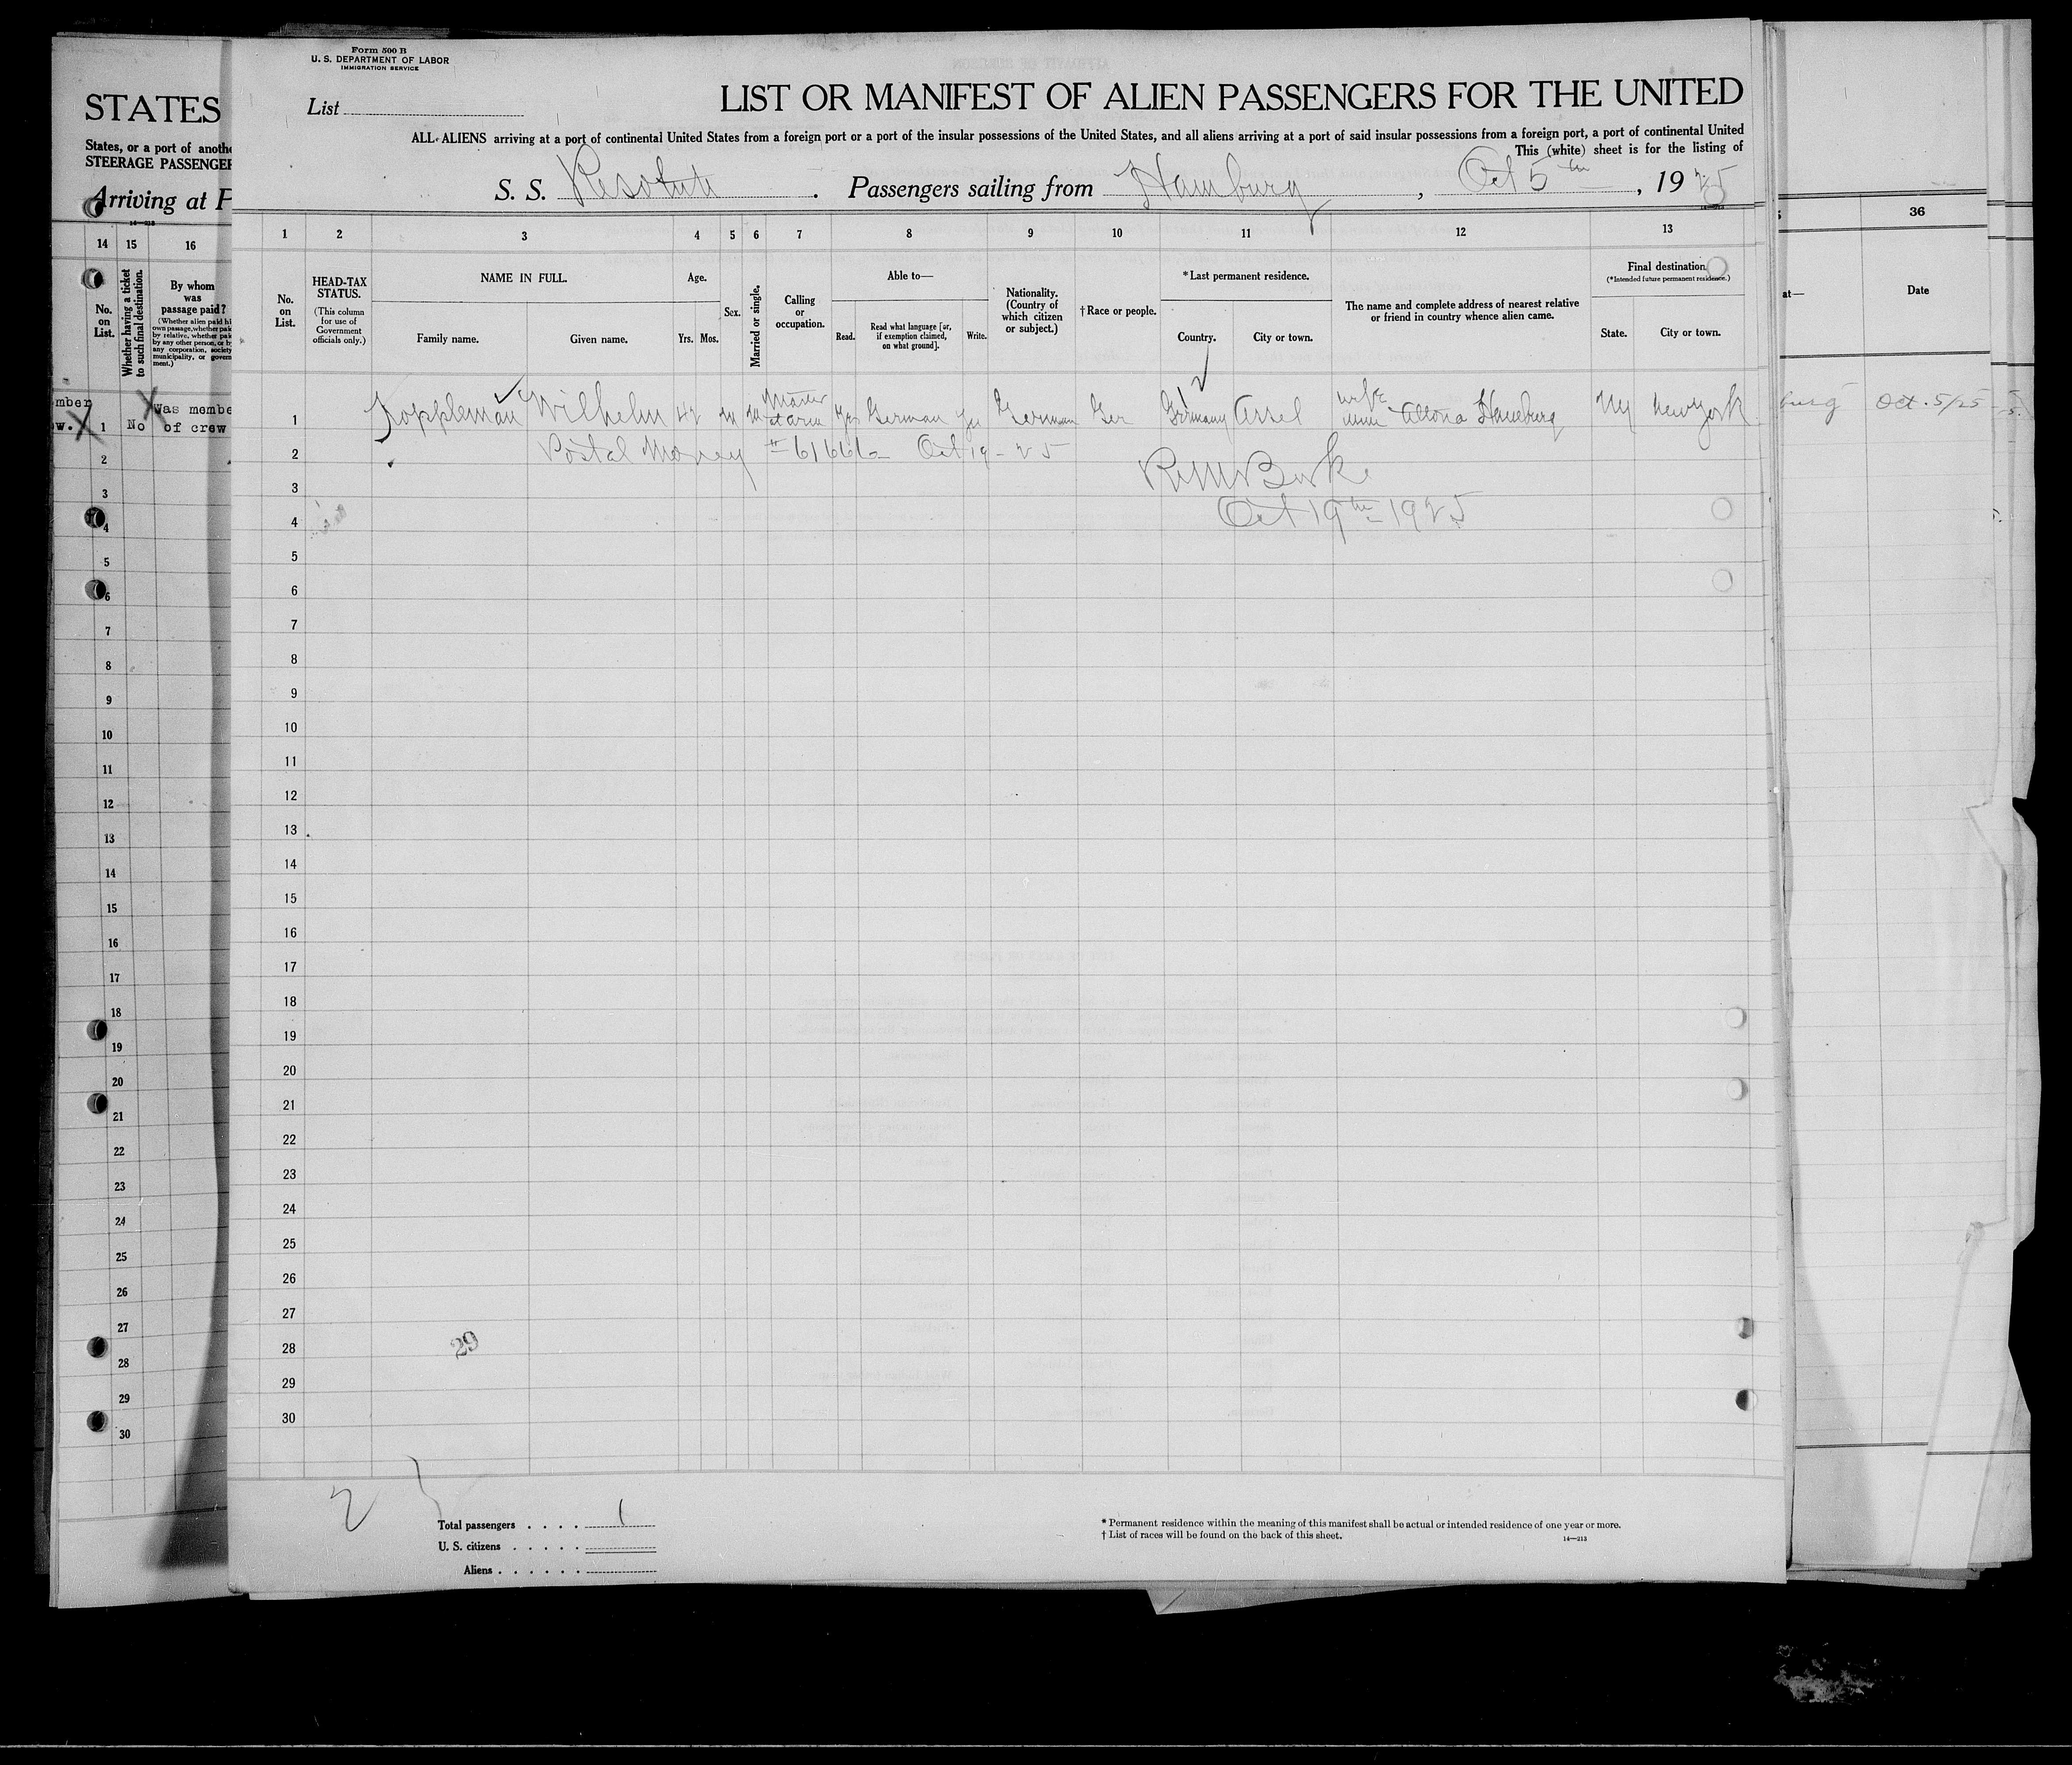 Form 500 B
U. S. DEPARTMENT OF LABOR
IMMIGRATION SERVICE
List
LIST OR MANIFEST OF ALIEN PASSENGERS FOR THE UNITED
ALL ALIENS arriving at a port of continental United States from a foreign port or a port of the insular possessions of the United States, and all aliens arriving at a port of said insular possessions from a foreign port, a port of continental United
This (white) sheet is for the listing of
S. S. Resolute . Passengers sailing from Hamburg , Oct 5th , 1925
STATES
States, or a port of anothe
STEERAGE PASSENGER
Arriving at P
14 15 16
No. on List.
Whether having a ticket to such final destination.
By whom was passage paid?
(Whether alien paid hi
own passage, whether paid
by relative, whether paid
by any other person, or b
any corporation, society
municipality, or govern
ment.)
mber
w. 1 No Was membe
of crew
2
3
4
5
6
7
8
9
10
11
12
13
14
15
16
17
18
19
20
21
22
23
24
25
26
27
28
29
30
1 2 3 4 5 6 7 8 9 10 11 12 13
No. on List.
HEAD-TAX STATUS.
(This column for use of Government officials only.)
NAME IN FULL.
Family name. Given name.
Age.
Yrs. Mos.
Sex.
Married or single.
Calling or occupation.
Able to—
Read. Read what language [or, if exemption claimed, on what ground]. Write.
Nationality. (Country of which citizen or subject.)
†Race or people.
*Last permanent residence.
Country. City or town.
The name and complete address of nearest relative or friend in country whence alien came.
Final destination.
(*Intended future permanent residence.)
State. City or town.
1 Koppleman Wilhelm 42 m M Master at arms Yes German Yes German Ger Germany wife Altona Hamburg NY New York
2 Postal Money #61666 Oct 19-25
3
Oct 19th 1925
4
5
6
7
8
9
10
11
12
13
14
15
16
17
18
19
20
21
22
23
24
25
26
27
28
29
30
29
2
Total passengers . . . . 1
U. S. citizens . . . . .
Aliens . . . . . .
* Permanent residence within the meaning of this manifest shall be actual or intended residence of one year or more.
† List of races will be found on the back of this sheet.
14—213
36
at—
Date
burg Oct. 5/25